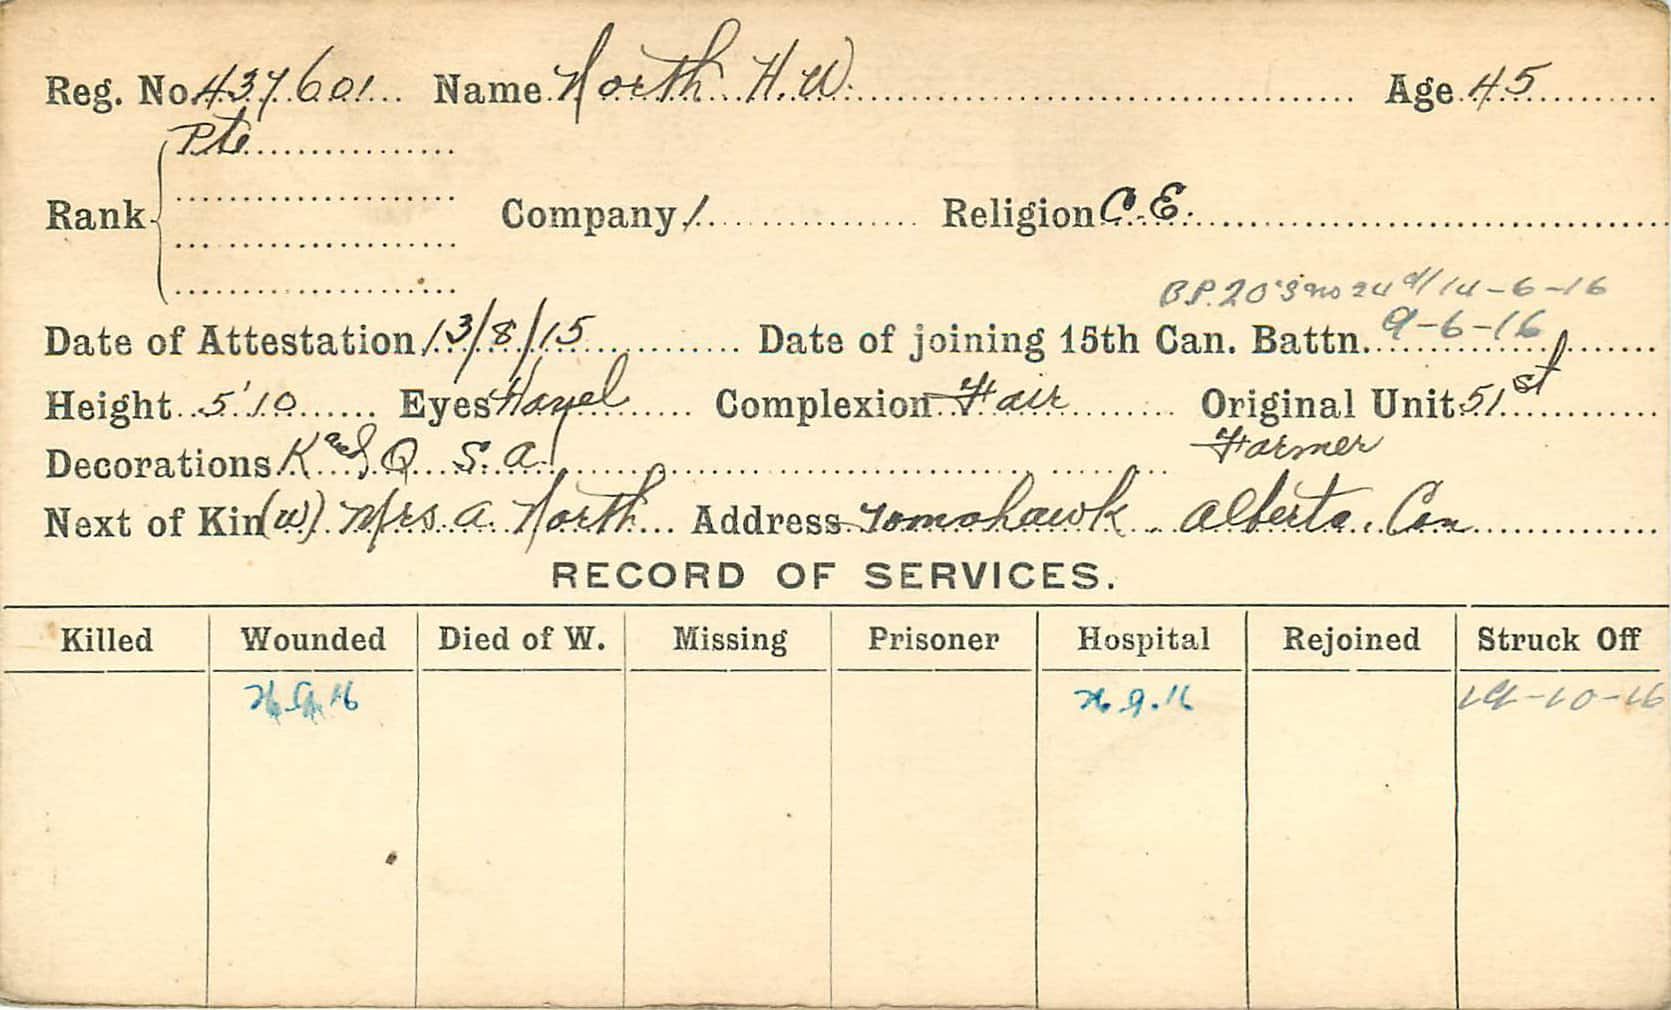 Reg. No. 437601 Name North H.W. Age 45
Pte
Rank Company 1 Religion C.E.
B.P. 20 14-6-16
Date of Attestation 13/8/15 Date of joining 15th Can. Battn. 9-6-16
Height 5'10 Eyes Hazel Complexion Fair Original Unit 51st
Decorations K and Q S.A. Farmer
Next of Kin (w) Mrs. A. North Address Tomahawk Alberta, Can
RECORD OF SERVICES.
Killed Wounded Died of W. Missing Prisoner Hospital Rejoined Struck Off
9.16 9.16 19-10-16